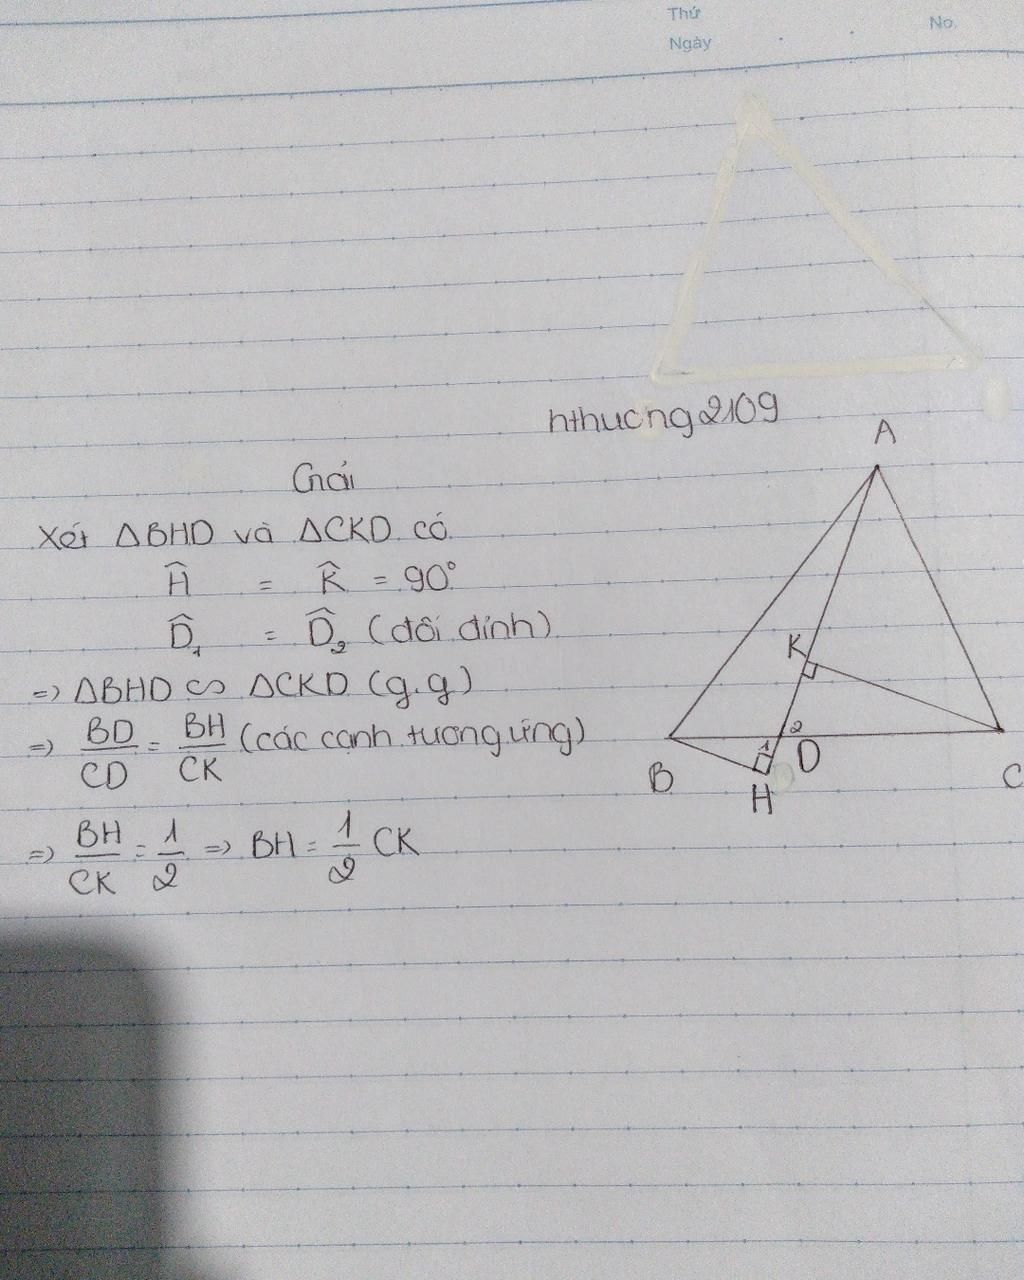 Thứ
Ngày
No.
nthuong2109
Giải
Xét ΔBHD và ΔCKD có
Ĥ = K̂ = 90°
D̂₁ = D̂₂ (đối đỉnh)
=> ΔBHD ∽ ΔCKD (g.g)
=> BD/CD = BH/CK (các cạnh tương ứng)
=> BH/CK = 1/2 => BH = 1/2 CK
A
K
2
1
B
D
C
H